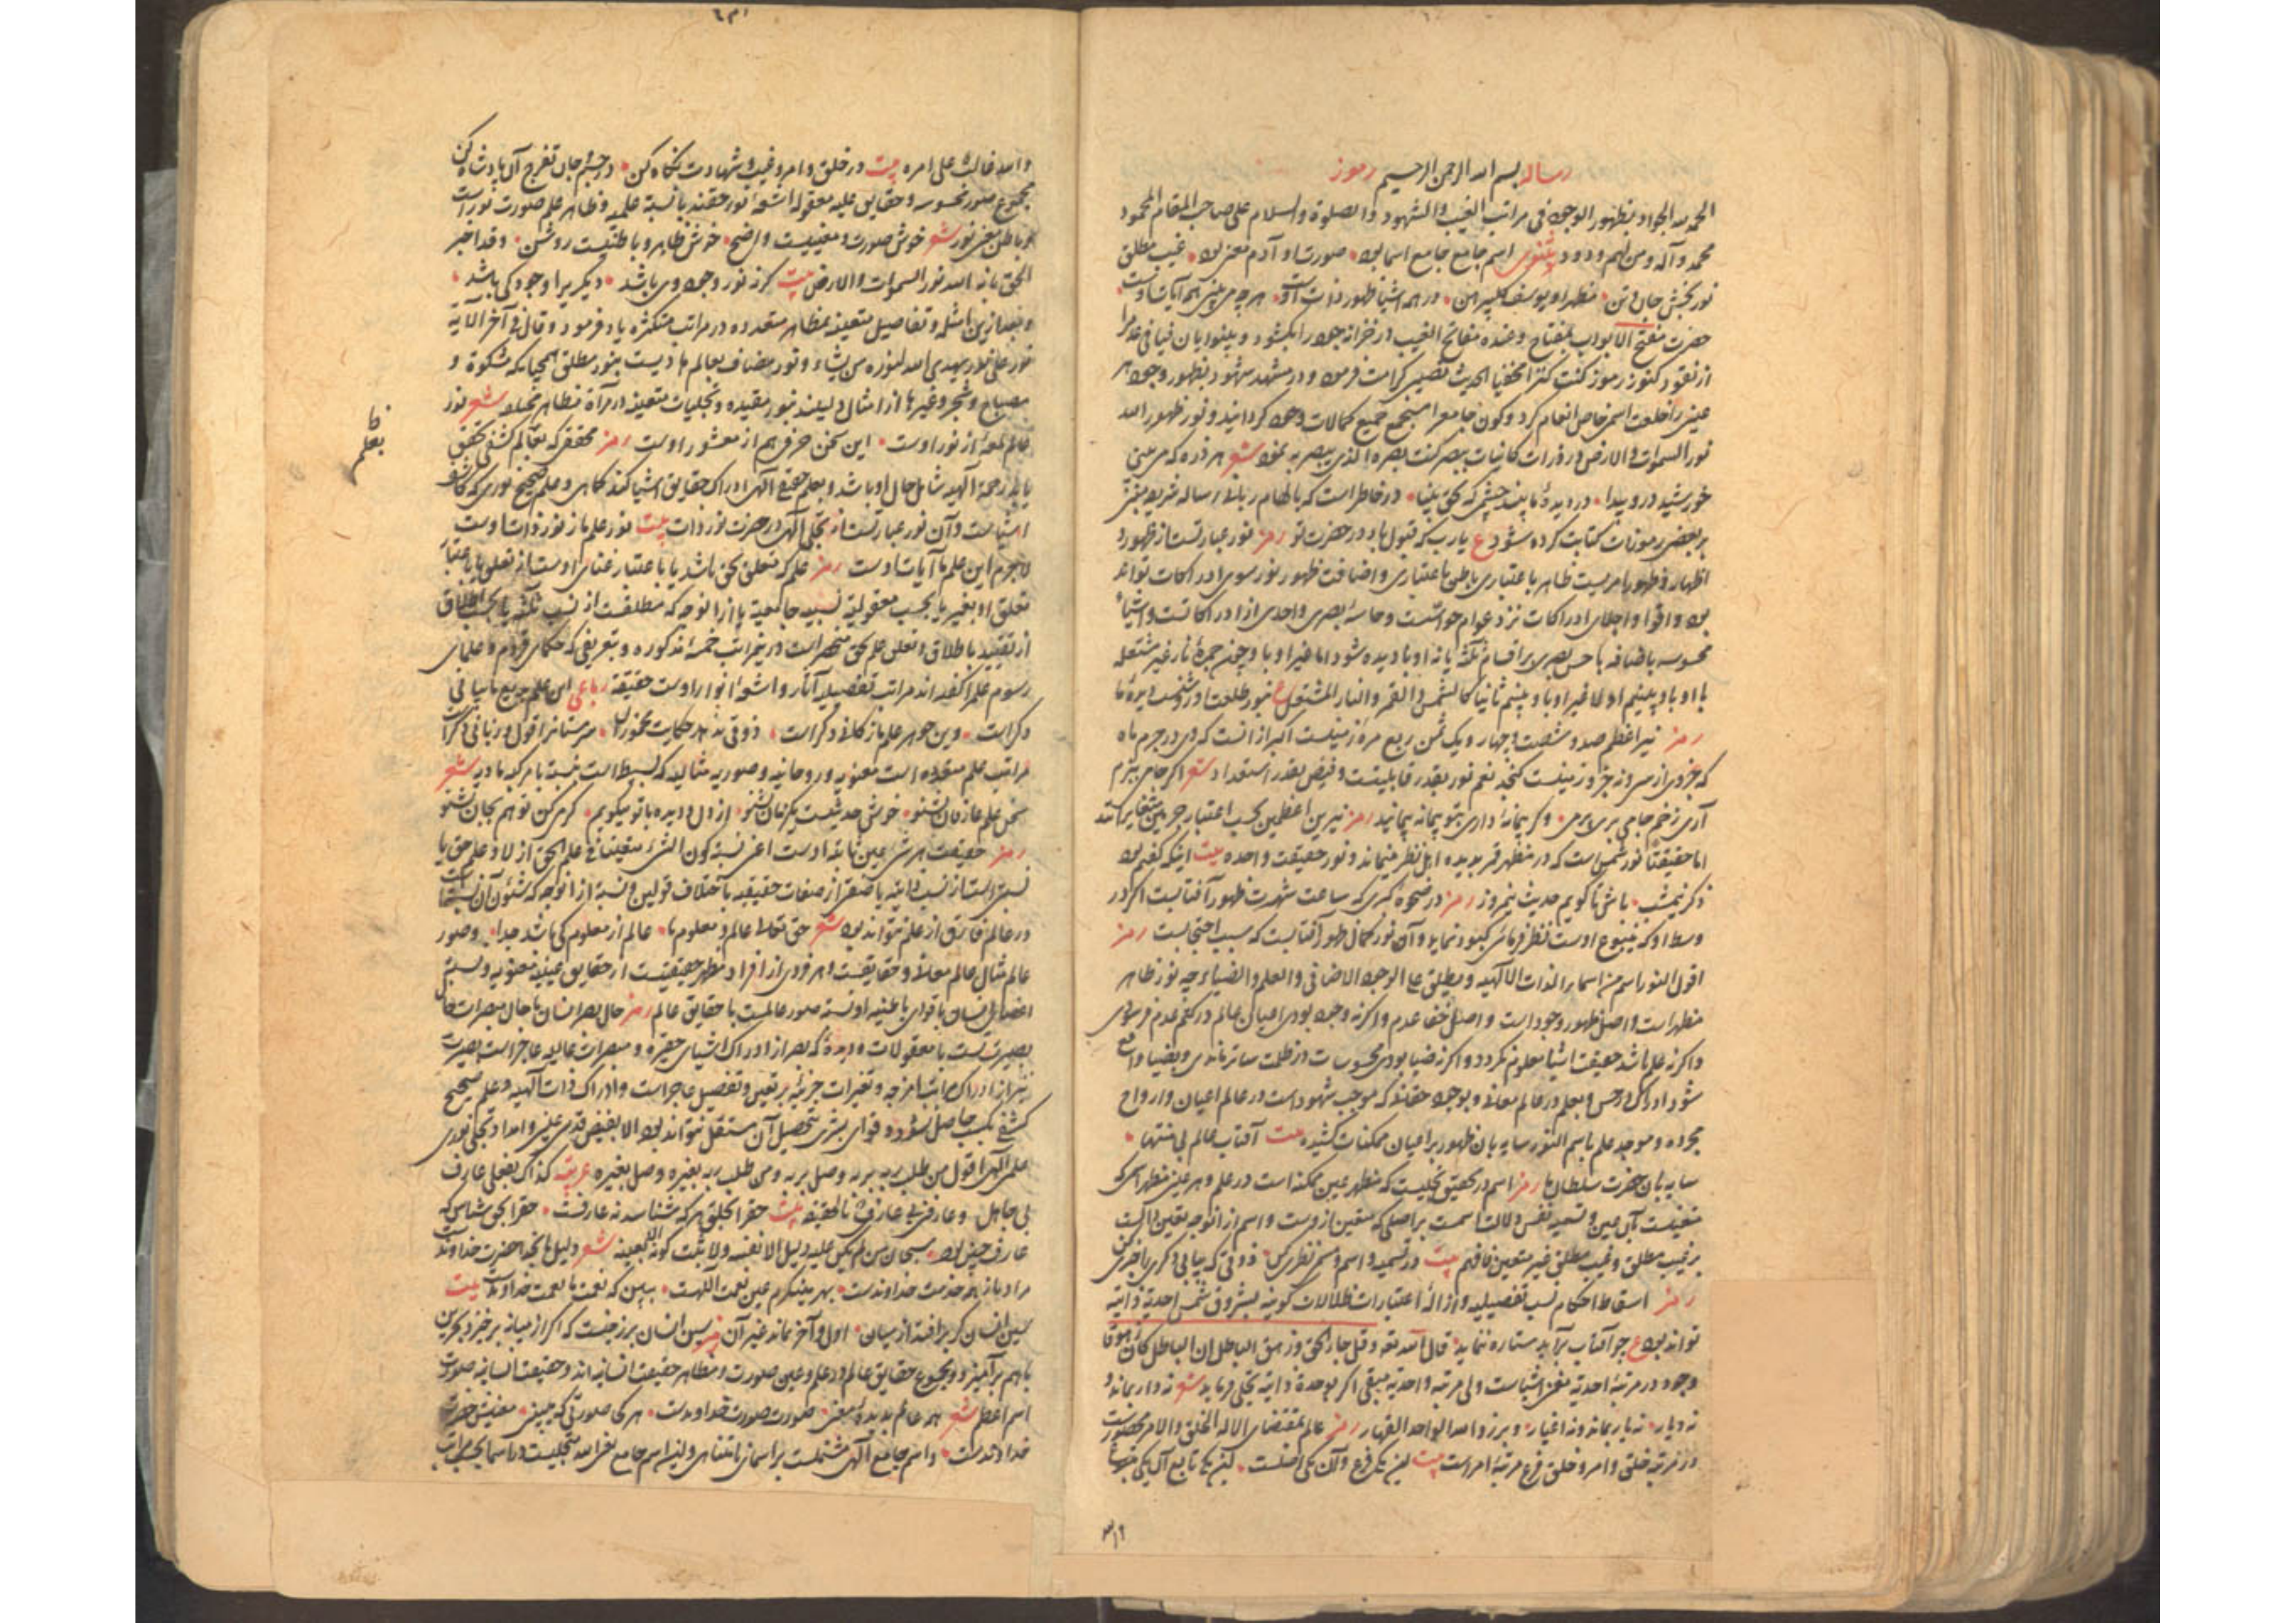 رساله بسم الله الرحمن الرحیم رموز
الحمد لله الجواد بظهور الوجود فی مراتب الغیب والشهود والصلوة والسلام علی صاحب المقام المحمود
محمد وآله ومن لهم ودود مثنوی اسم جامع جامع اسما بود صورت او آدم معنی بود غیب مطلق
نور بخش جان و تن مظهر او یوسف گل پیرهن در همه اشیا ظهور ذات اوست هر چه می بینی همه آیات اوست
حضرت مفتح الابواب بمفتاح وعنده مفاتح الغیب در خزانه جود را بگشود و
از نقود کنوز رموز کنت کنزا مخفیا الحدیث کرامت فرمود و در مشهد شهود بظهور وجود هر
عینی را خلعت اسمی خاص انعام کرد و کون جامع را مجمع جمیع کمالات وجود گردانید و نور ظهور الله
نور السموات والارض در ذرات کاینات بصر کنت بصره الذی یبصر به نمود شعر هر ذره که می بینی
خورشید درو پیدا در دیدهٔ ما بیند چشمی که بحق بینا در خاطر است که بالهام ربانی رساله شریفه
بر بعضی رموزات کتابت کرده شود ع یارب که قبول باد در حضرت تو رمز نور عبارتست از ظهور و
اظهار و ظهور امریست ظاهر باعتباری باطن باعتباری و اضافت ظهور نور سوی ادراکات تواند
بود و اقوا و اجلای ادراکات نزد عوام حواسست و حاسهٔ بصری واحدی از ادراکاتست و اشیاء
محسوسه باضافه با حس بصری بر اقسام ثلثه یا نه او باو دیده شود اما غیر او باو چون جمرهٔ نار غیر مشتعله
یا او باو بینیم اولا غیر او باو بینیم ثانیا کالشمس والقمر والنار المشتعل ع بنور طلعت او روشنست دیدهٔ ما
رمز نیر اعظم صد و شصت و چهار و یک ثمن ربع مرهٔ زمینست اکبر از آنست که در جرم ماه
که جزوی از سی و نه جزو زمینست گنجد نعم نور بقدر قابلیتست و فیض بقدر استعداد شعر اگر جامی بریم
آری زخم جامی بری پر می وگر پیمانهٔ داری بتو پیمانه پیمایند رمز نیرین اعظمین بحسب اعتبار جرمین متغایرانند
اما حقیقتا نور شمس است که در مظهر قمر بدیده اهل نظر مینماید و نور حقیقت واحده بیت اینکه گفتم بود
ذکر نیمشب باش تا گویم حدیث نیمروز رمز در ضحوهٔ کبری که ساعت شهرت ظهور آفتابست اگر در
وسط او که ینبوع اوست نظر فرمائی کبود نماید و آن نور کمال ظهور آفتابست که سبب احتجابست رمز
اقول النور اسم من اسماء الذات الالهیه ویطلق علی الوجود الاضافی والعلم والضیاء چه نور ظاهر
مظهر است و اصل ظهور وجود است و اصل خفا عدم و اگر نه وجود بودی اعیان عالم در کتم عدم فرسودی
و اگر نه علم باشد حقیقت اشیا معلوم نگردد و اگر نه ضیا بودی محسوسات در ظلمت ساتر ماندی و بضیا واقع
شود ادراک در حس و بعلم در عالم معانی و بوجود حقانی که موجب شهود است در عالم اعیان و ارواح
مجرده و موجد علم باسم النور سایه بان ظهور بر اعیان ممکنات کشیده بیت آفتاب عالم بی منتها
سایه بان حضرت سلطان ما رمز اسم در تحقیق تجلیست که مظهر عین ممکنه است در علم و هر عینی مظهر اسمی که
متعینست بآن عین و تسمیه نفس دلالت اسمست بر اصلی که متعین ازوست و اسم از آنوجه تعین دالست
بر غیب مطلق و غیب مطلق غیر متعین فافهم بیت در تسمیه و اسم و مسمی نظری کن ذوقی که بیابی دگری را خبری کن
رمز اسقاط احکام نسب تفصیلیه و ازالهٔ اعتبارات ظلالات کونیه بشروق شمس احدیة ذاتیه
تواند بود ع چو آفتاب برآید ستاره ننماید قال الله تعالی وقل جاء الحق وزهق الباطل ان الباطل کان زهوقا
وجود در مرتبهٔ احدیه مفنی اشیاست ولی مرتبه واحدیه مبقی اگر بوحدة ذاتیه تجلی فرماید شعر نه دار بماند و
نه دیار نه یار بماند و نه اغیار وبرزوا لله الواحد القهار رمز عالم بمقتضای الا له الخلق والامر محصورست
در مرتبه خلق و امر و خلق فرع مرتبهٔ امر است بیت این یکی فرع و آن یکی اصلست این یکی تابع آن یکی متبوع
۱۲
والله غالب علی امره بیت در خلق و امر و غیب و شهادت نگاه کن در چشم جان تفرج آن پادشاه کن
مجموع صور محسوسه و حقایق علیه معقوله اشعهٔ نور حقند یا نسبة علمیه و ظاهر علم صورت نور است
و باطن معنی نور شعر خوش صورت و معنییست واضح خوش ظاهر و باطنیست روشن وقد اخبر
الحق بانه الله نور السموات والارض بیت گر نه نور وجود وی باشد دیگری را وجود کی باشد
و بعد ازین امثله و تفاصیل متعینه بمظاهر متعدده در مراتب متکثره یاد فرمود و قال فی آخر الآیه
نور علی نور یهدی الله لنوره من یشاء و نور مضاف بعالم هادیست بنور مطلق همچنانکه مشکوة و
مصباح و شجر و غیرها از امثال دلیلند بنور مقیده و تجلیات متعینه در مرآة مظاهر شعر نور
عالم لمعهٔ از نور اوست این سخن حرفی هم از منشور اوست رمز محققی که بعالم کشفی تحقیق
یابد رحمة الهیه شامل حال او باشد و بعلم حقیقی الهی ادراک حقایق اشیا کند کما هی و علم صحیح نوری که کاشف
اشیاست و آن نور عبارتست از تجلی الهی در حضرت نور ذات بیت نور علم ما ز نور ذات اوست
لاجرم این علم ما آیات اوست رمز علم که متعلق بحق باشد یا باعتبار غنای اوست از تعلق یا باعتبار
تعلق او بغیر یا بحسب معقولیة نسبیه جامعیة یا از آنوجه که مطلقست از نسب ثلثه یا بحسب اطلاق
از تقیید باطلاق و تعلق علم بحق منحصر است درین مراتب خمسهٔ مذکوره و تعریفی که حکمای قدم و علمای
رسوم علم را گفته‌اند مراتب تفصیلیه آثار و اشعهٔ انوار اوست حقیقة رباعی این علم بدیع ما بیانی
دگر است وین جوهر علم ما ز کانی دگر است ذوقی ندهد حکایت مخموران سرمستان را قول و زبانی دگر است
مراتب علم متعدده است معنویه و روحانیه و صوریه مثالیه که بسیط است نسبة با مرکبه مادیه شعر
سخن علم عارفان بشنو خوش حدیثیست یک زمان بشنو از دل و دیده با تو میگویم کرمی کن تو هم بجان بشنو
رمز حقیقت هر شی عین ثابتهٔ اوست اعنی نسبة کون الشیء متعینا فی علم الحق ازلا و علم حق یا
نسبتی است از نسب ذاتیه یا صفتی از صفات حقیقیه باختلاف قولین و نسبة از آنوجه که شئون آن نسبتها
در عالم فارق از علم نتواند بود شعر حق تعالی عالم و معلوم ما عالم از معلوم کی باشد جدا و صور
عالم مثال عالم معانی و حقایقست و هر فردی از افراد مظهر حقیقتست از حقایق غیبیه معنویه و نسبة
اعضای انسان با قوای باطنیه او نسبة صور عالمست با حقایق عالم رمز حال بصر انسان با حال مبصرات حال
بصیرتست با معقولات و همچنانکه بصر از ادراک اشیای حقیره و مبصرات عالیه عاجز است بصیرت
نیز از ادراک مراتب امزجه و تغیرات جزئیه بر تعین و تفصیل عاجز است و ادراک ذات الهیه و علم صحیح
کشفی بکسب حاصل نشود و قوای بشری بتحصیل آن مستقل نتواند بود الا بفیض قدسی غیبی و امداد تجلی نوری
علمی الهی اقول من طلب ربه بربه وصل بربه ومن طلب ربه بغیره وصل بغیره عربیه کذاک بفعلی عارف
بی جاهل وعارفنی بی عارف بالحقیقه بیت حق را بخلق هر که شناسد نه عارفست حق را بحق شناس که
عارف چنین بود سبحان من لم یکن علیه دلیل الا نفسه ولا یثبت کونه الا بعینه شعر دلیل ما بخدا حضرت خداوندست
مراد ما ز همه خدمت خداوندست بهر چه مینگرم عین نعمت اللهست ببین که نعمت ما نعمت خداوندست بیت
عین انسان گر برافتد از میان اول و آخر نماند غیر آن رمز عین انسان برزخیست که اگر از میانه برخیزد بحرین
باهم برآمیزد و مجموع حقایق عالم در علم و عین صورت و مظاهر حقیقت انسانیه‌اند و حقیقت انسانیه صورت
اسم اعظم شعر همه عالم بدیدهٔ معنی صورت صورت خداوندست هر کجا صورتی که می‌بینی معنیش حضرت
خداوندست و اسم جامع الهی مشتملست بر اسمای نامتناهی و لیس اسم جامع غیر الله متجلیست در اسما بحسب مراتب